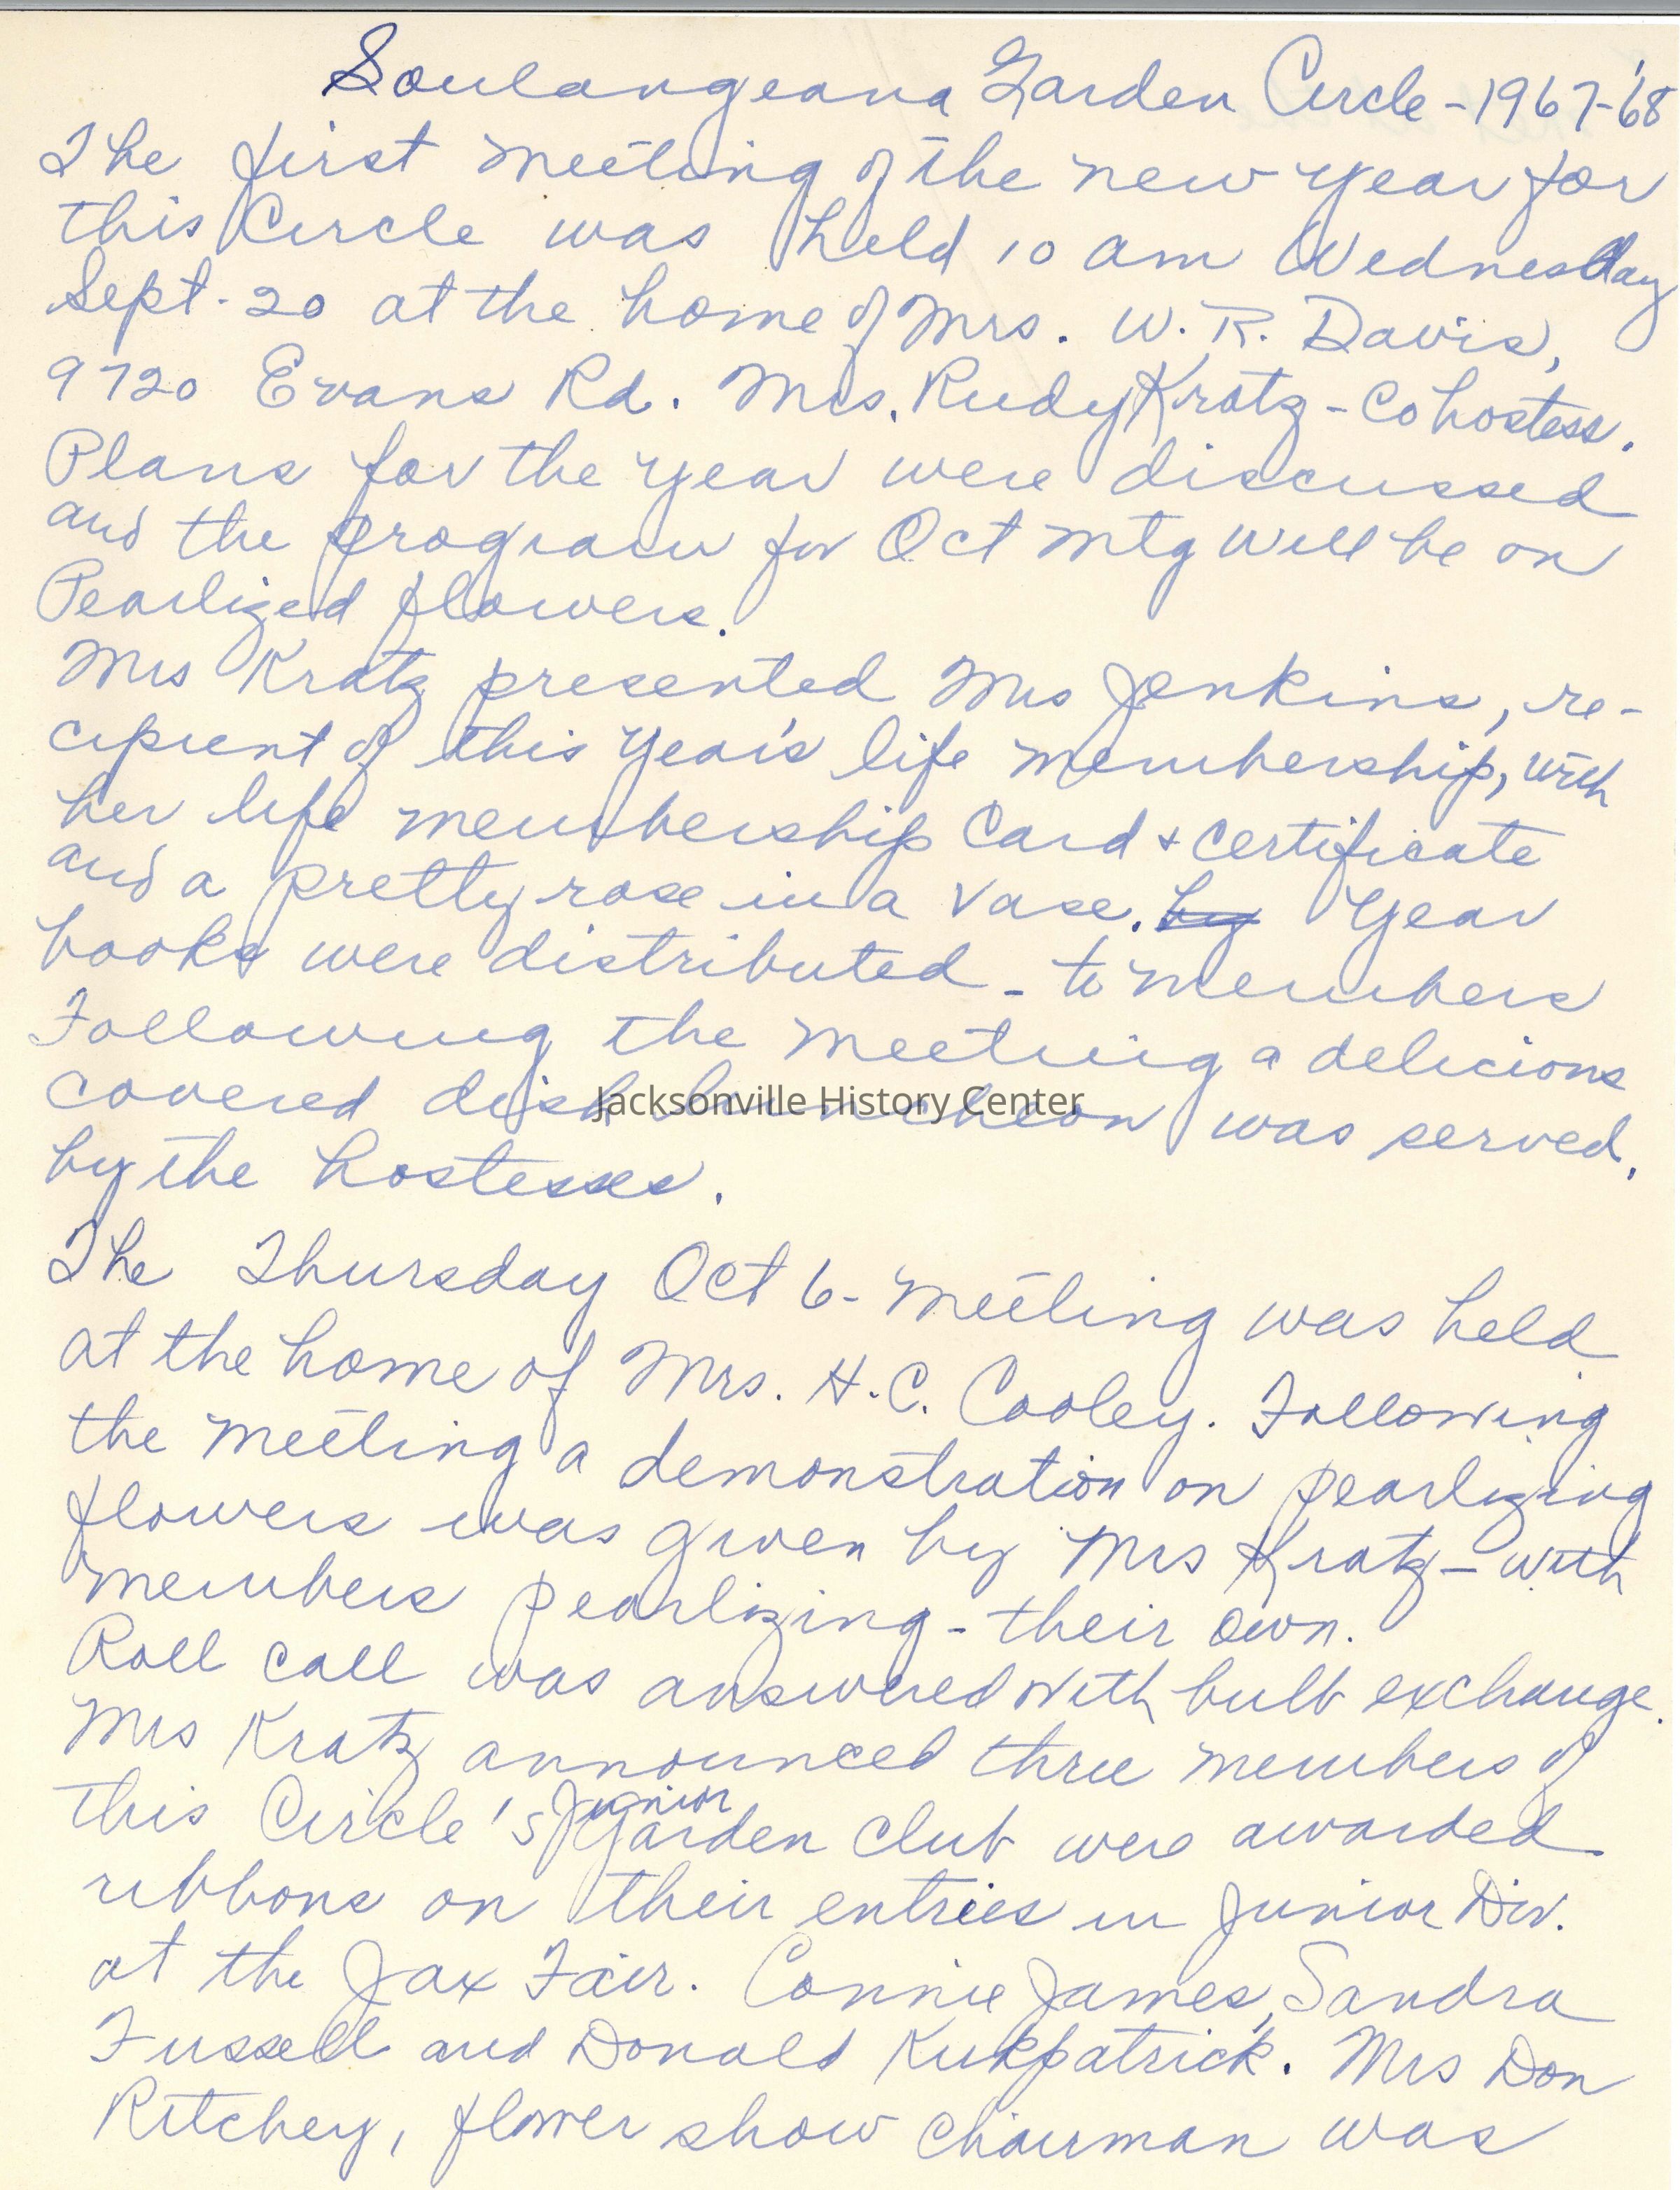 Soulangeana Garden Circle - 1967-'68
The first meeting of the new year for
this Circle was held 10 am Wednesday
Sept. 20 at the home of Mrs. W. R. Davis,
9720 Evans Rd. Mrs. Rudy Kratz - Cohostess.
Plans for the year were discussed
and the program for Oct mtg will be on
Pearlized flowers.
Mrs Kratz presented Mrs Jenkins, re-
cipient of this year's life membership, with
her life membership Card + certificate
and a pretty rose in a vase. by Year
books were distributed - to members
Following the meeting a delicious
covered dish luncheon was served,
Jacksonville History Center
by the hostesses.
The Thursday Oct 6 - meeting was held
at the home of Mrs. H.C. Cooley. Following
the meeting a demonstration on pearlizing
flowers was given by Mrs Kratz - with
members pearlizing - their own.
Roll call was answered with bulb exchange.
Mrs Kratz announced three members of
this Circle's Junior Garden Club were awarded
ribbons on their entries in Junior Div.
at the Jax Fair. Connie James, Sandra
Fussell and Donald Kirkpatrick. Mrs Don
Ritchey, flower show chairman was